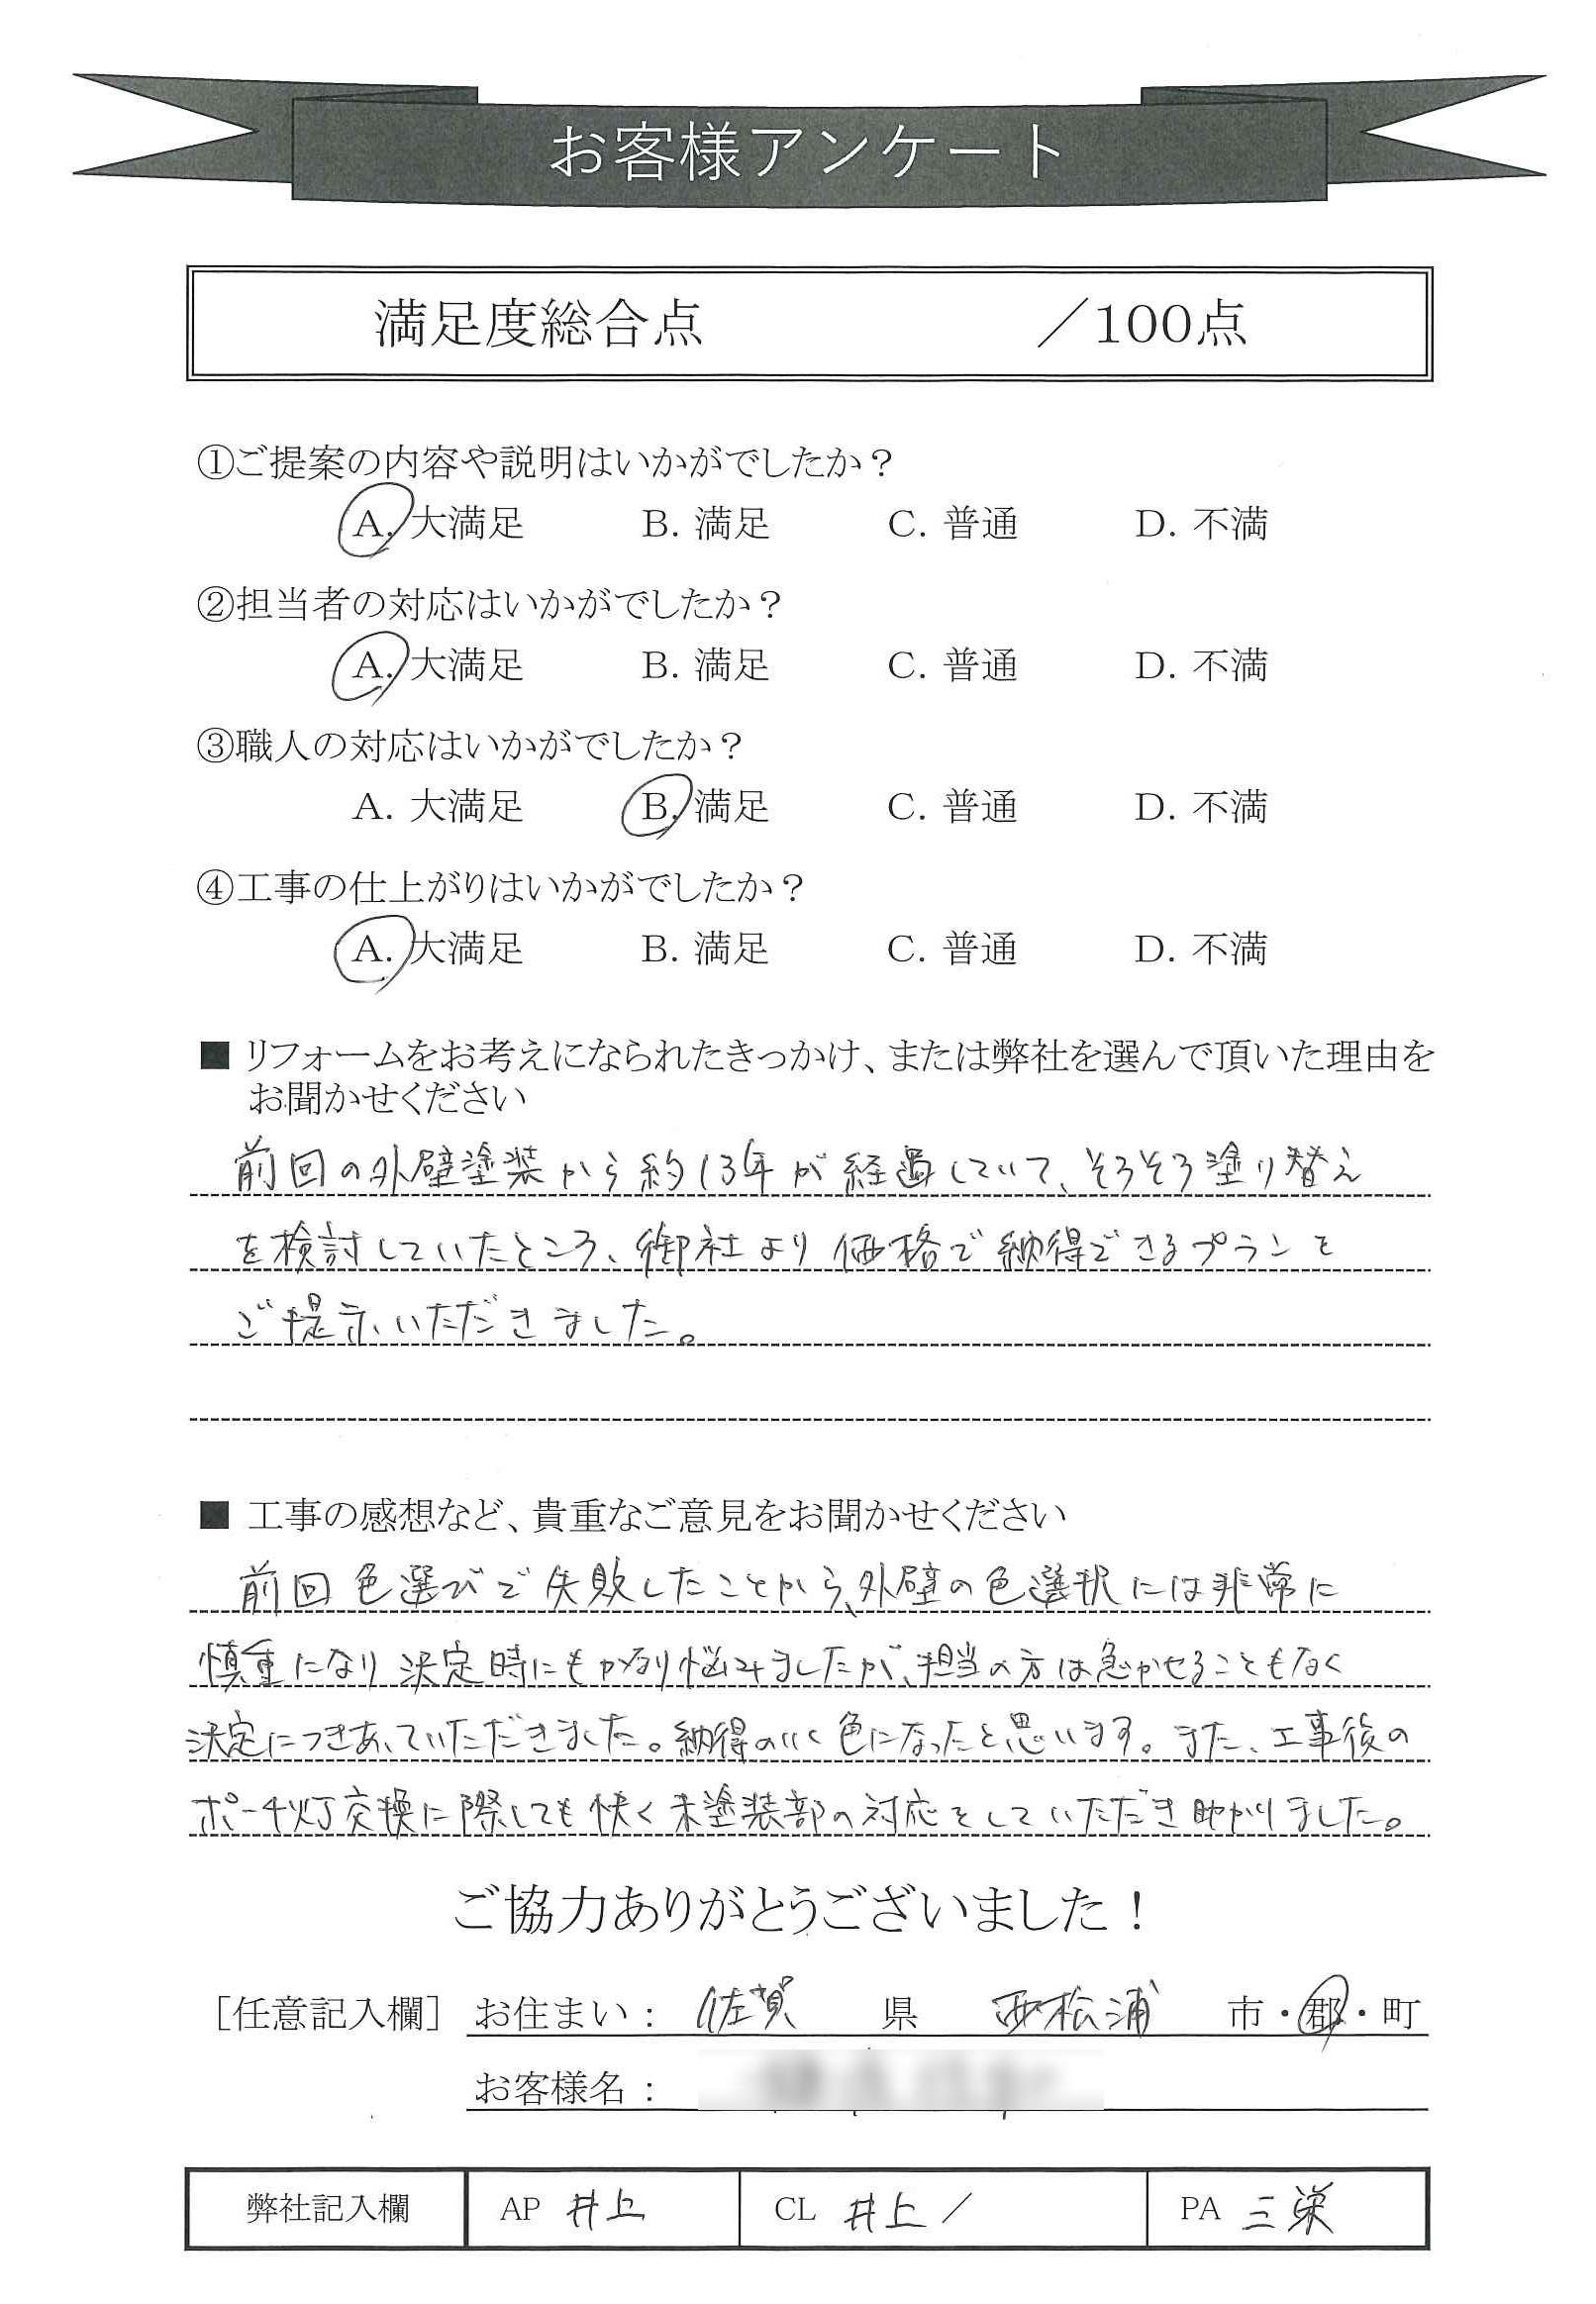 お客様アンケート
満足度総合点 ／100点
①ご提案の内容や説明はいかがでしたか？
A. 大満足 B. 満足 C. 普通 D. 不満
②担当者の対応はいかがでしたか？
A. 大満足 B. 満足 C. 普通 D. 不満
③職人の対応はいかがでしたか？
A. 大満足 B. 満足 C. 普通 D. 不満
④工事の仕上がりはいかがでしたか？
A. 大満足 B. 満足 C. 普通 D. 不満
■ リフォームをお考えになられたきっかけ、または弊社を選んで頂いた理由を
お聞かせください
前回の外壁塗装から約13年が経過していて、そろそろ塗り替え
を検討していたところ、御社より価格で納得できるプランを
ご提示いただきました。
■ 工事の感想など、貴重なご意見をお聞かせください
前回色選びで失敗したことから、外壁の色選択には非常に
慎重になり決定時にもかなり悩みましたが、担当の方は急かせることもなく
決定につきあっていただきました。納得のいく色になったと思います。また、工事後の
ポーチ灯交換に際しても快く未塗装部の対応をしていただき助かりました。
ご協力ありがとうございました！
［任意記入欄］ お住まい： 佐賀 県 西松浦 市・郡・町
お客様名：
弊社記入欄 AP 井上 CL 井上／ PA 三栄